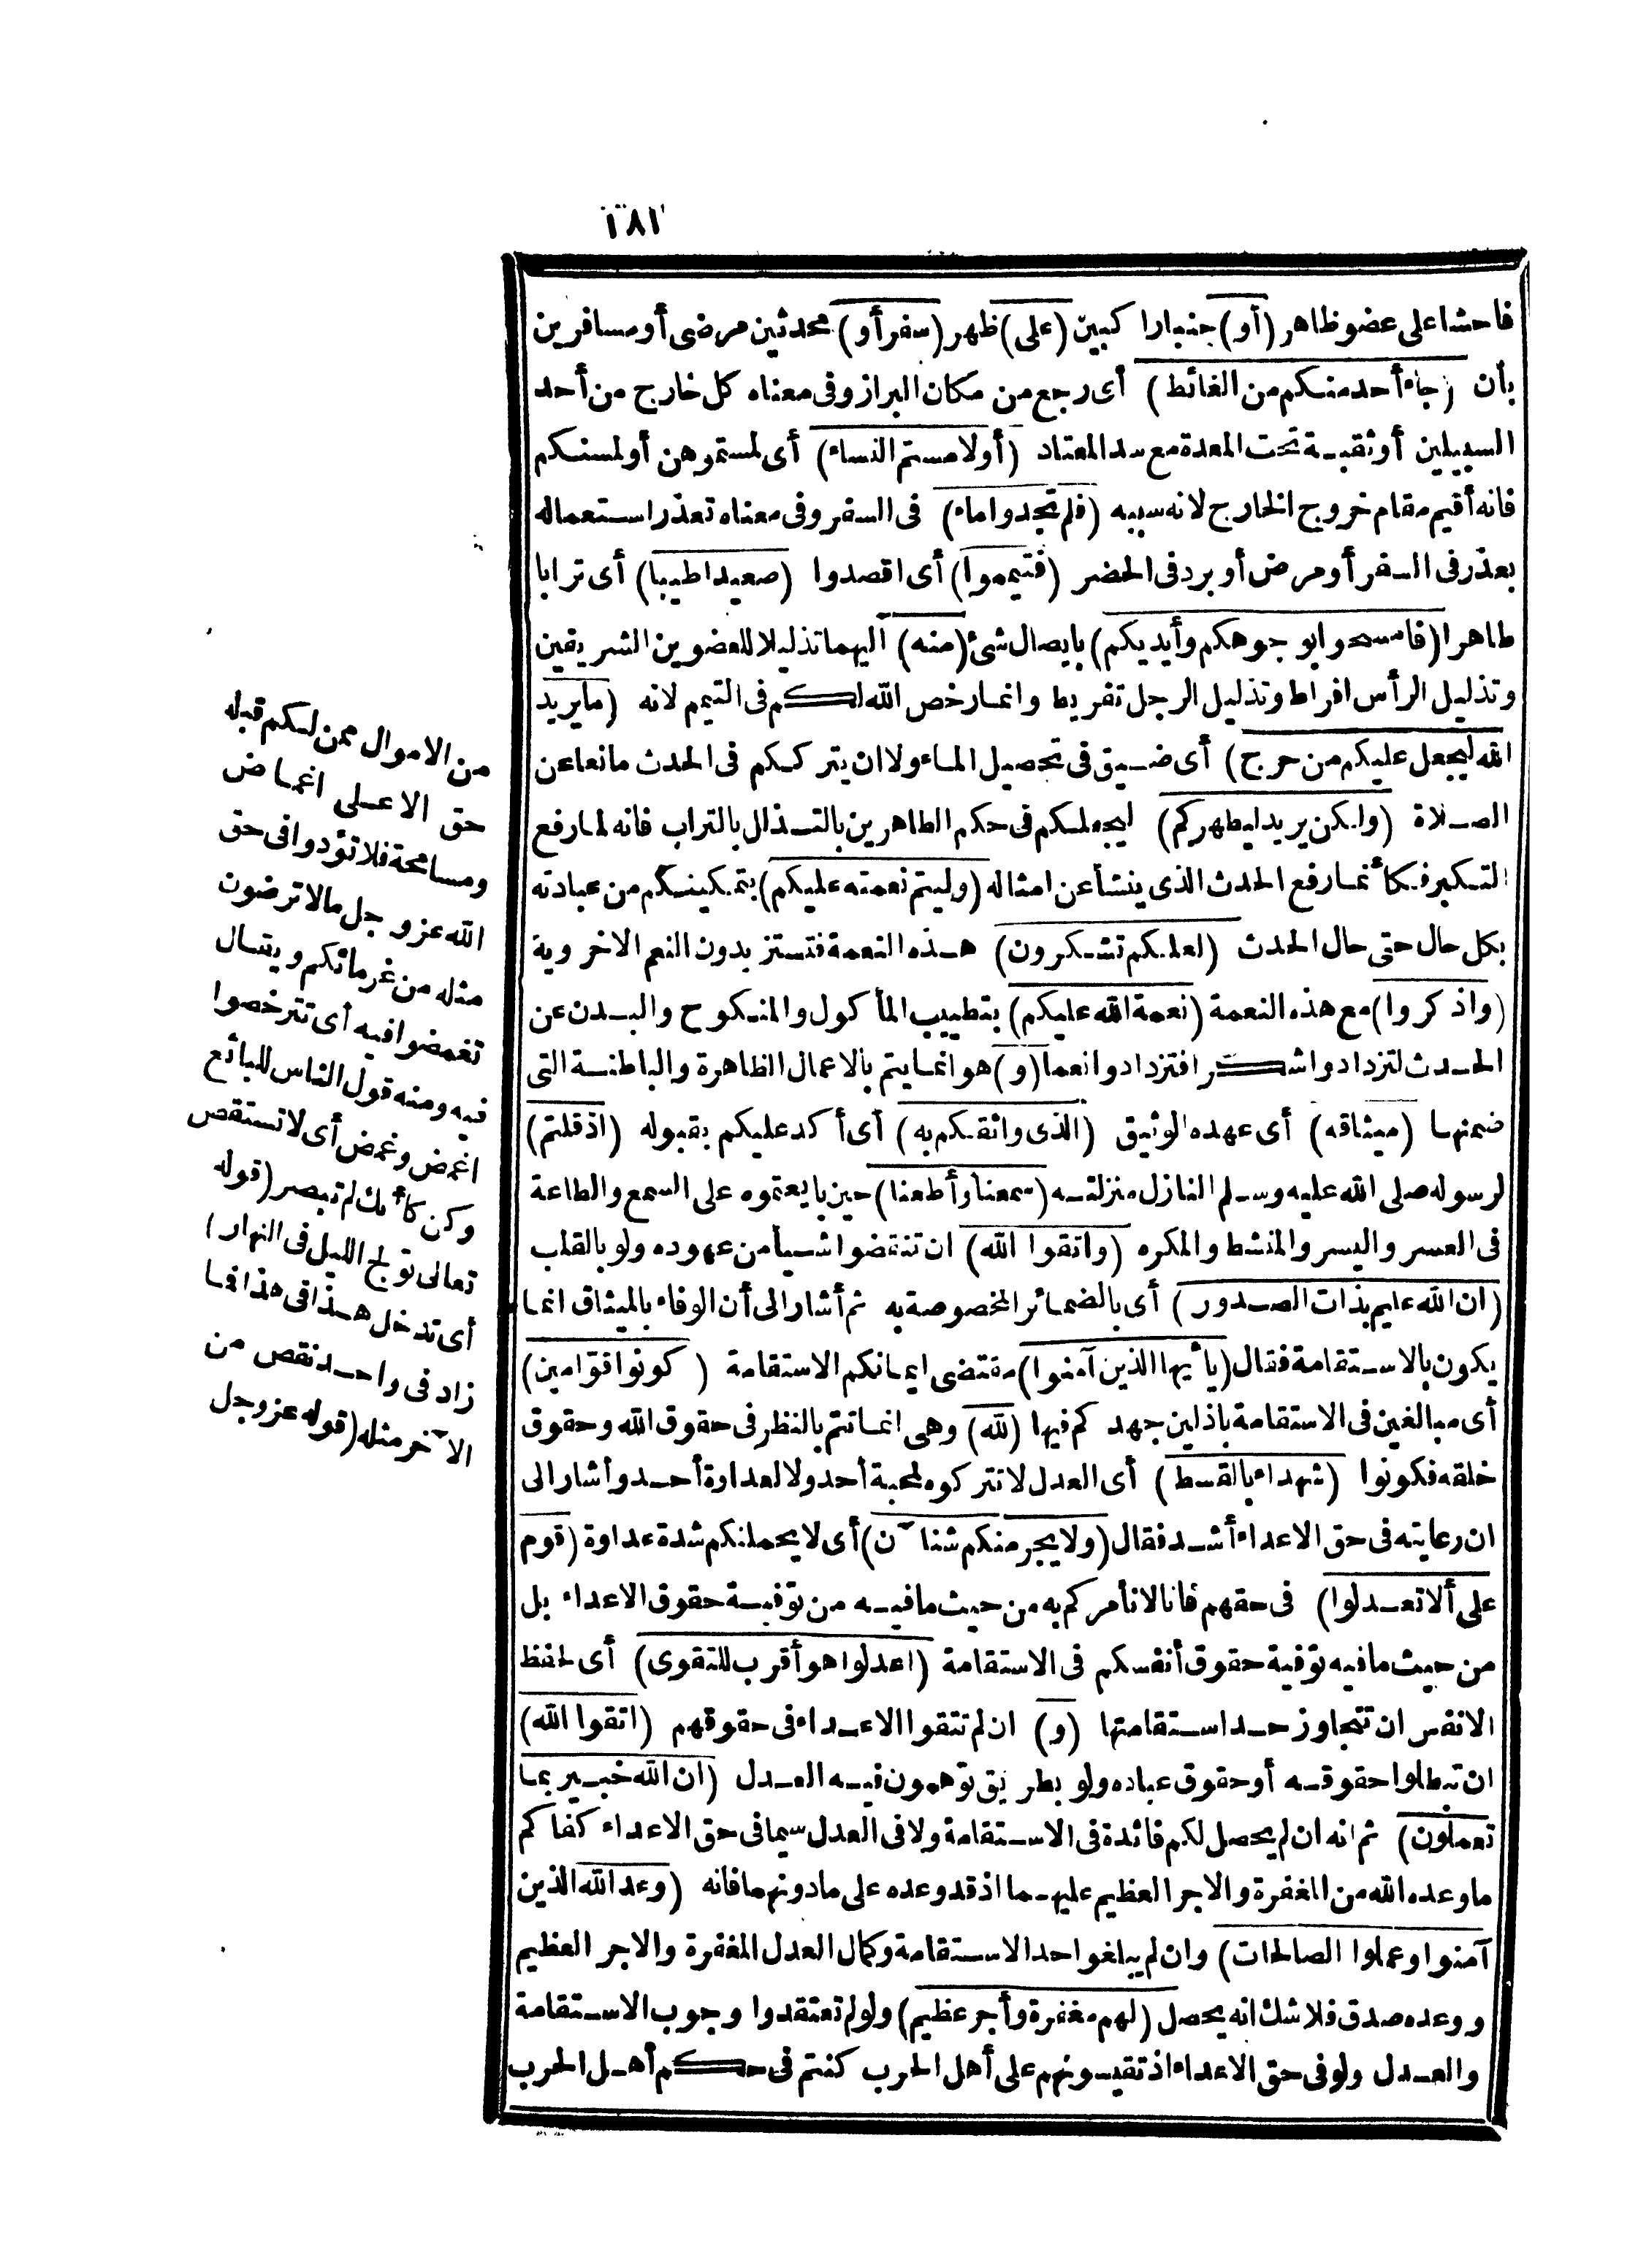 ١٨١
فاحشا على عضو ظاهر (أو) جنبا راكبين (على) ظهر (سفر أو) محدثين مرضى أو مسافرين
بأن (جاء أحد منكم من الغائط) أى رجع من مكان البراز وفى معناه كل خارج من أحد
السبيلين أو ثقبة تحت المعدة مع سد المعتاد (أولامستم النساء) أى لمستموهن أو لمسنكم
فانه أقيم مقام خروج الخارج لانه سببه (فلم تجدوا ماء) فى السفر وفى معناه تعذر استعماله
بعذر فى السفر أو مرض أو برد فى الحضر (فتيمموا) أى اقصدوا (صعيدا طيبا) أى ترابا
طاهرا (فامسحوا بوجوهكم وأيديكم) بايصال شئ (منه) اليهما تذليلا للعضوين الشريفين
وتذليل الرأس افراط وتذليل الرجل تفريط وانما رخص الله لكم فى التيمم لانه (ما يريد
الله ليجعل عليكم من حرج) أى ضيق فى تحصيل الماء ولا ان يترككم فى الحدث مانعا عن
الصلاة (ولكن يريد ليطهركم) ليجعلكم فى حكم الطاهرين بالتذلل بالتراب فانه لما رفع
التكبر فكأنما رفع الحدث الذى ينشأ عن امثاله (وليتم نعمته عليكم) بتمكينكم من عبادته
بكل حال حتى حال الحدث (لعلكم تشكرون) هذه النعمة فتستزيدون النعم الاخروية
(واذكروا) مع هذه النعمة (نعمة الله عليكم) بتطييب المأكول والمنكوح والبدن عن
الحدث لتزدادوا شكرا فتزدادوا نعما (و) هو انما يتم بالاعمال الظاهرة والباطنة التى
ضمنها (ميثاقه) أى عهده الوثيق (الذى واثقكم به) أى أكد عليكم بقبوله (اذ قلتم)
لرسوله صلى الله عليه وسلم النازل منزلته (سمعنا وأطعنا) حين بايعتموه على السمع والطاعة
فى العسر واليسر والمنشط والمكره (واتقوا الله) ان تنقضوا شيأ من عهوده ولو بالقلب
(ان الله عليم بذات الصدور) أى بالضمائر المخصوصة به ثم أشار الى أن الوفاء بالميثاق انما
يكون بالاستقامة فقال (يأيها الذين آمنوا) مقتضى ايمانكم الاستقامة (كونوا قوّامين)
أى مبالغين فى الاستقامة باذلين جهدكم فيها (لله) وهى انما تتم بالنظر فى حقوق الله وحقوق
خلقه فكونوا (شهداء بالقسط) أى العدل لا تتركوه لمحبة أحد ولا لعداوة أحد وأشار الى
ان رعايته فى حق الاعداء أشد فقال (ولا يجرمنكم شنآن) أى لا يحملنكم شدة عداوة (قوم
على ألا تعدلوا) فى حقهم فانا لا نأمركم به من حيث ما فيه من توفية حقوق الاعداء بل
من حيث ما فيه توفية حقوق أنفسكم فى الاستقامة (اعدلوا هو أقرب للتقوى) أى لحفظ
الانفس ان تتجاوز حد استقامتها (و) ان لم تتقوا الاعداء فى حقوقهم (اتقوا الله)
ان تبطلوا حقوقه أو حقوق عباده ولو بطريق توهمون فيه العدل (ان الله خبير بما
تعملون) ثم انه ان لم يحصل لكم فائدة فى الاستقامة ولا فى العدل سيما فى حق الاعداء كفاكم
ما وعده الله من المغفرة والاجر العظيم عليهما اذ قد وعده على ما دونهما فانه (وعد الله الذين
آمنوا وعملوا الصالحات) وان لم يبلغوا حد الاستقامة وكمال العدل المغفرة والاجر العظيم
ووعده صدق فلا شك انه يحصل (لهم مغفرة وأجر عظيم) ولو لم تعتقدوا وجوب الاستقامة
والعدل ولو فى حق الاعداء اذ تقيسونهم على أهل الحرب كنتم فى حكم أهل الحرب
من الاموال ممن لكم قبله
حق الاعلى اغماض
ومسامحة فلا تؤدوا فى حق
الله عز وجل ما لا ترضون
مثله من غرمائكم ويقال
تغمضوا فيه أى تترخصوا
فيه ومنه قول الناس للبائع
اغمض وغمض أى لا تستقص
وكن كأنك لم تبصر (قوله
تعالى تولج الليل فى النهار)
أى تدخل هذا فى هذا فما
زاد فى واحد نقص من
الآخر مثله (قوله عز وجل